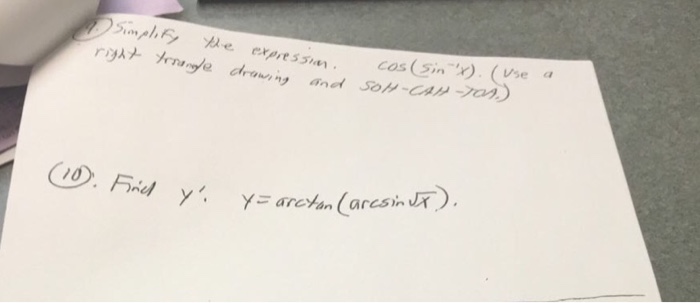 9.) Simplify the expression. cos(sin⁻¹x). (Use a
right triangle drawing and SOH-CAH-TOA.)
(10). Find y'. y = arctan(arcsin√x).